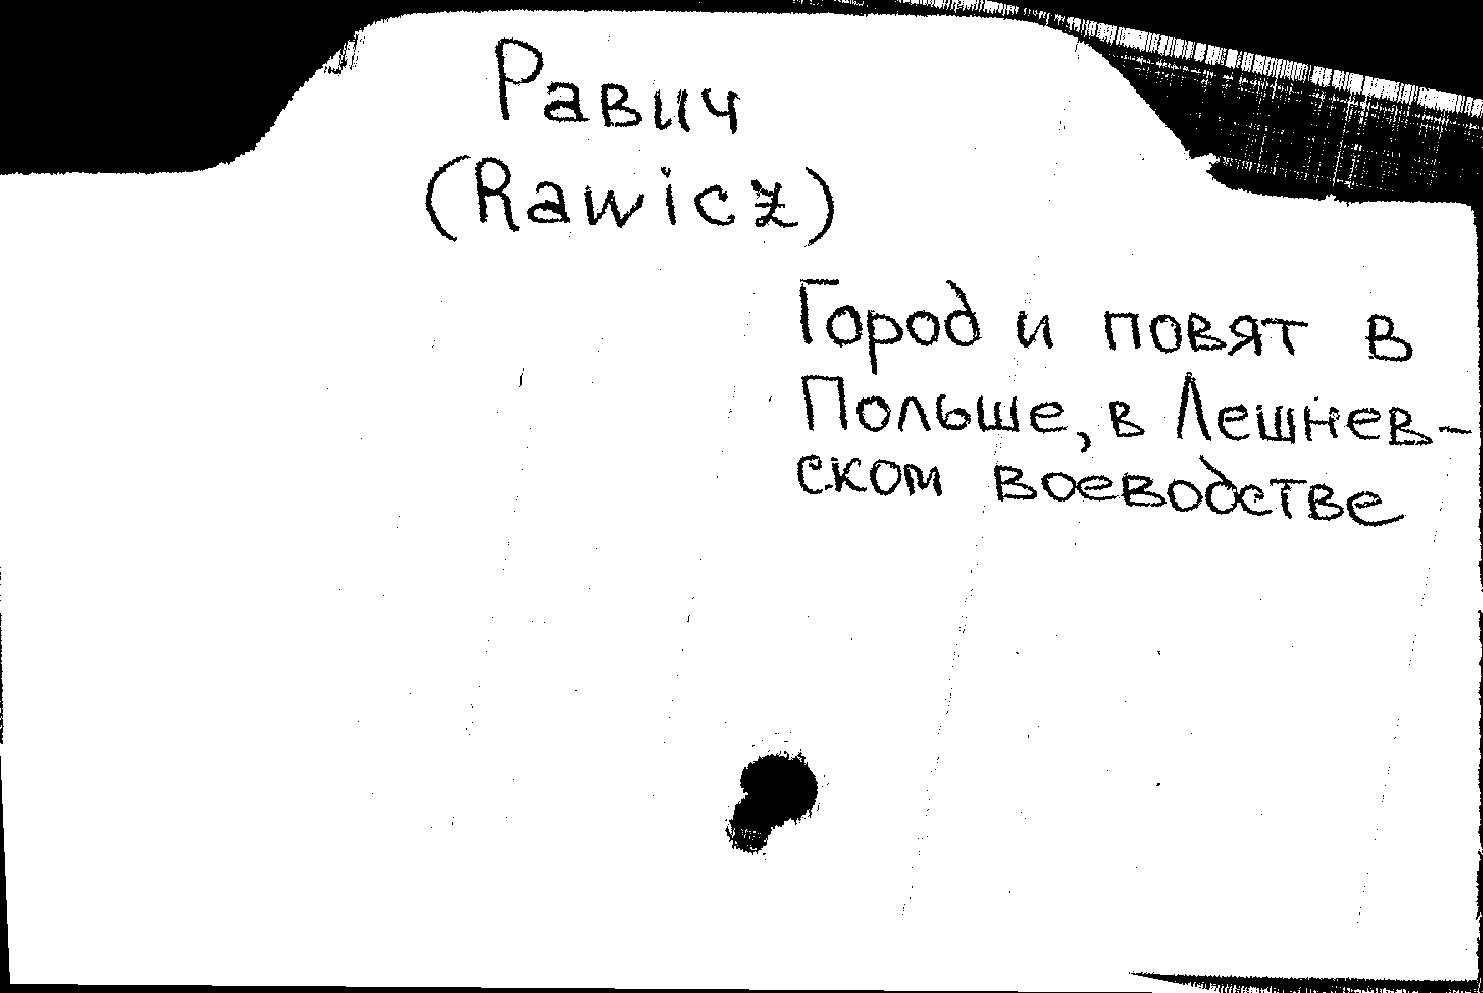 Равич
(Rawicz)
Город и повят в
Польше, в Лешнев-
ском воеводстве